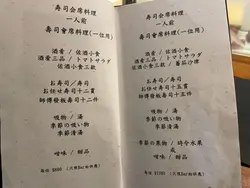 寿司会席料理
一人前
寿司會席料理(一位用)
酒肴 / 佐酒小食
酒肴三品 / トマトサラダ
佐酒小食三款
お寿司 / 寿司
お任せ寿司十二貫
師傅發板壽司十二件
吸物 / 湯
季節の吸い物
季節清湯
甘味 / 甜品
寿司会席料理
一人前
壽司會席料理(一位用)
酒肴 / 佐酒小食
酒肴三品 / トマトサラダ
佐酒小食三款 / 蕃茄沙律
お寿司 / 寿司
お任せ寿司十五貫
師傅發板壽司十五件
吸物 / 湯
季節の吸い物
季節清湯
季節の果物 / 時令水果
或
甘味 / 甜品